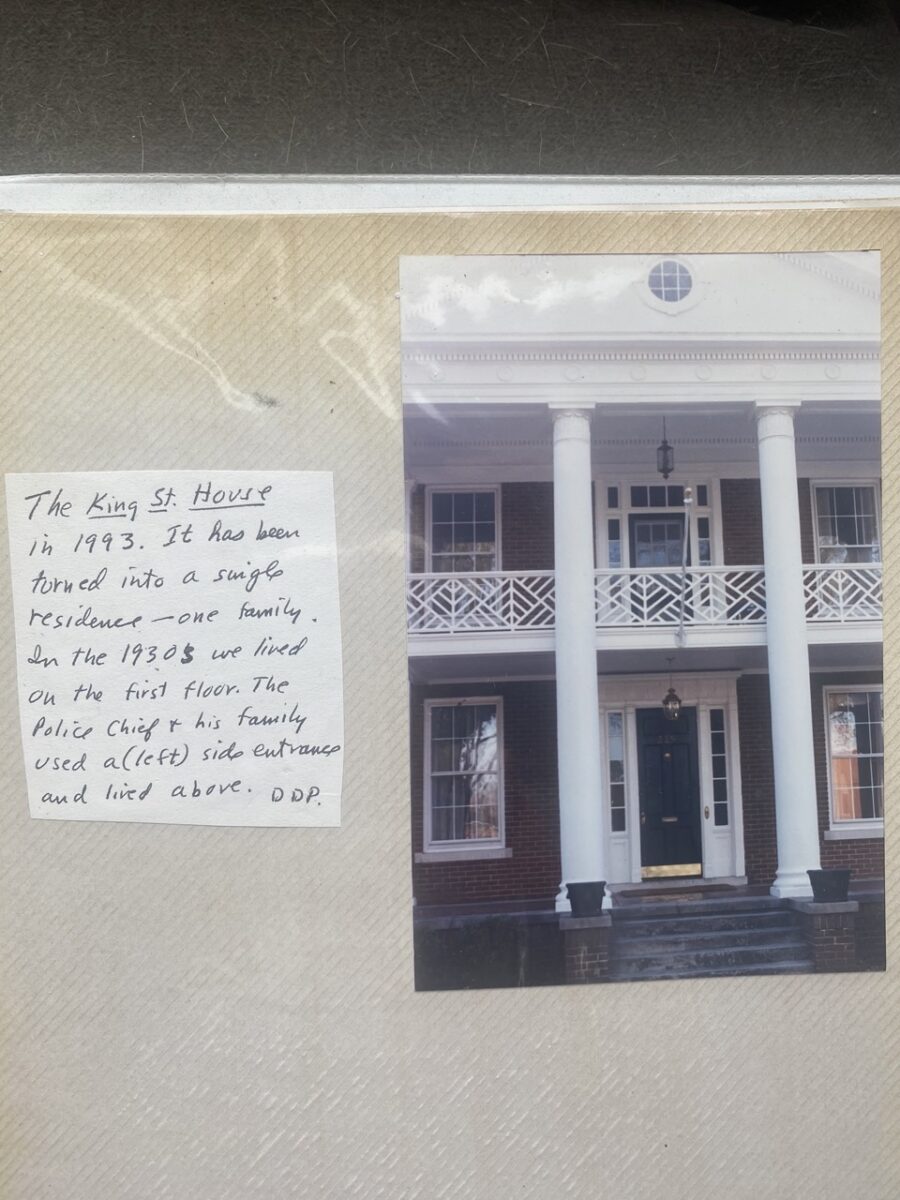 The King St. House
in 1993. It has been
turned into a single
residence — one family.
In the 1930s we lived
on the first floor. The
Police Chief & his family
used a (left) side entrance
and lived above. DDP.